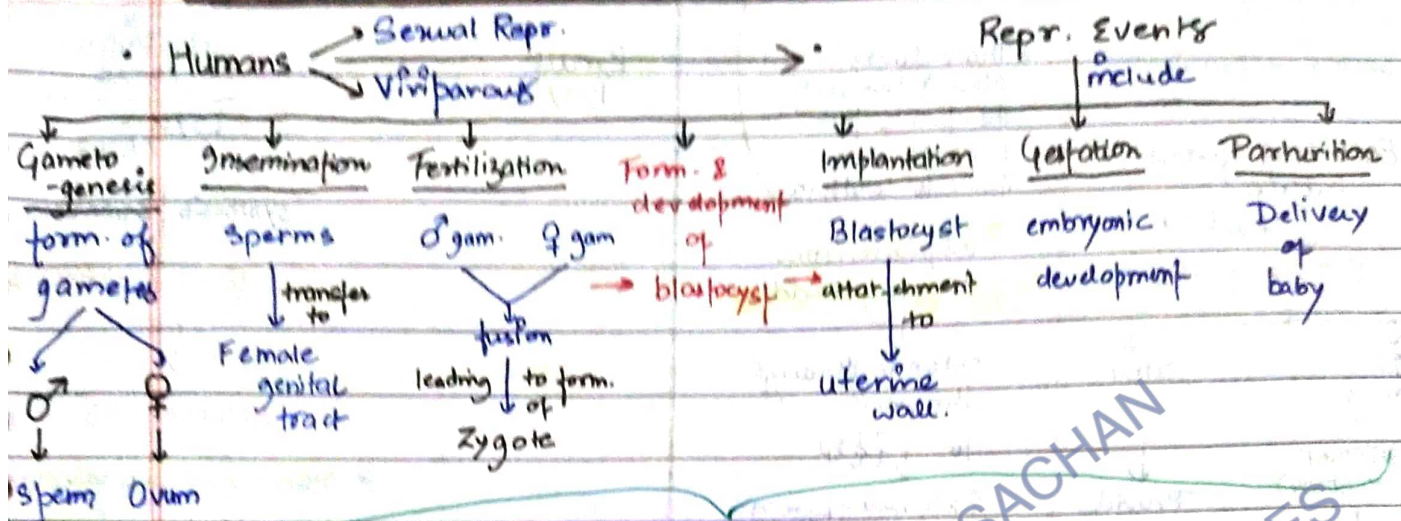 • Humans → Sexual Repr.
→ Viviparous
• Repr. Events
include
Gameto
-genesis
form. of
gametes
♂ ♀
Sperm Ovum
Insemination
Sperms
transfer
to
Female
genital
tract
Fertilization
♂ gam. ♀ gam
fusion
leading to form.
of
Zygote
Form. &
development
of
→ blastocyst →
Implantation
Blastocyst
attachment
to
uterine
wall.
Gestation
embryonic
development
Parturition
Delivery
of
baby
SACHAN